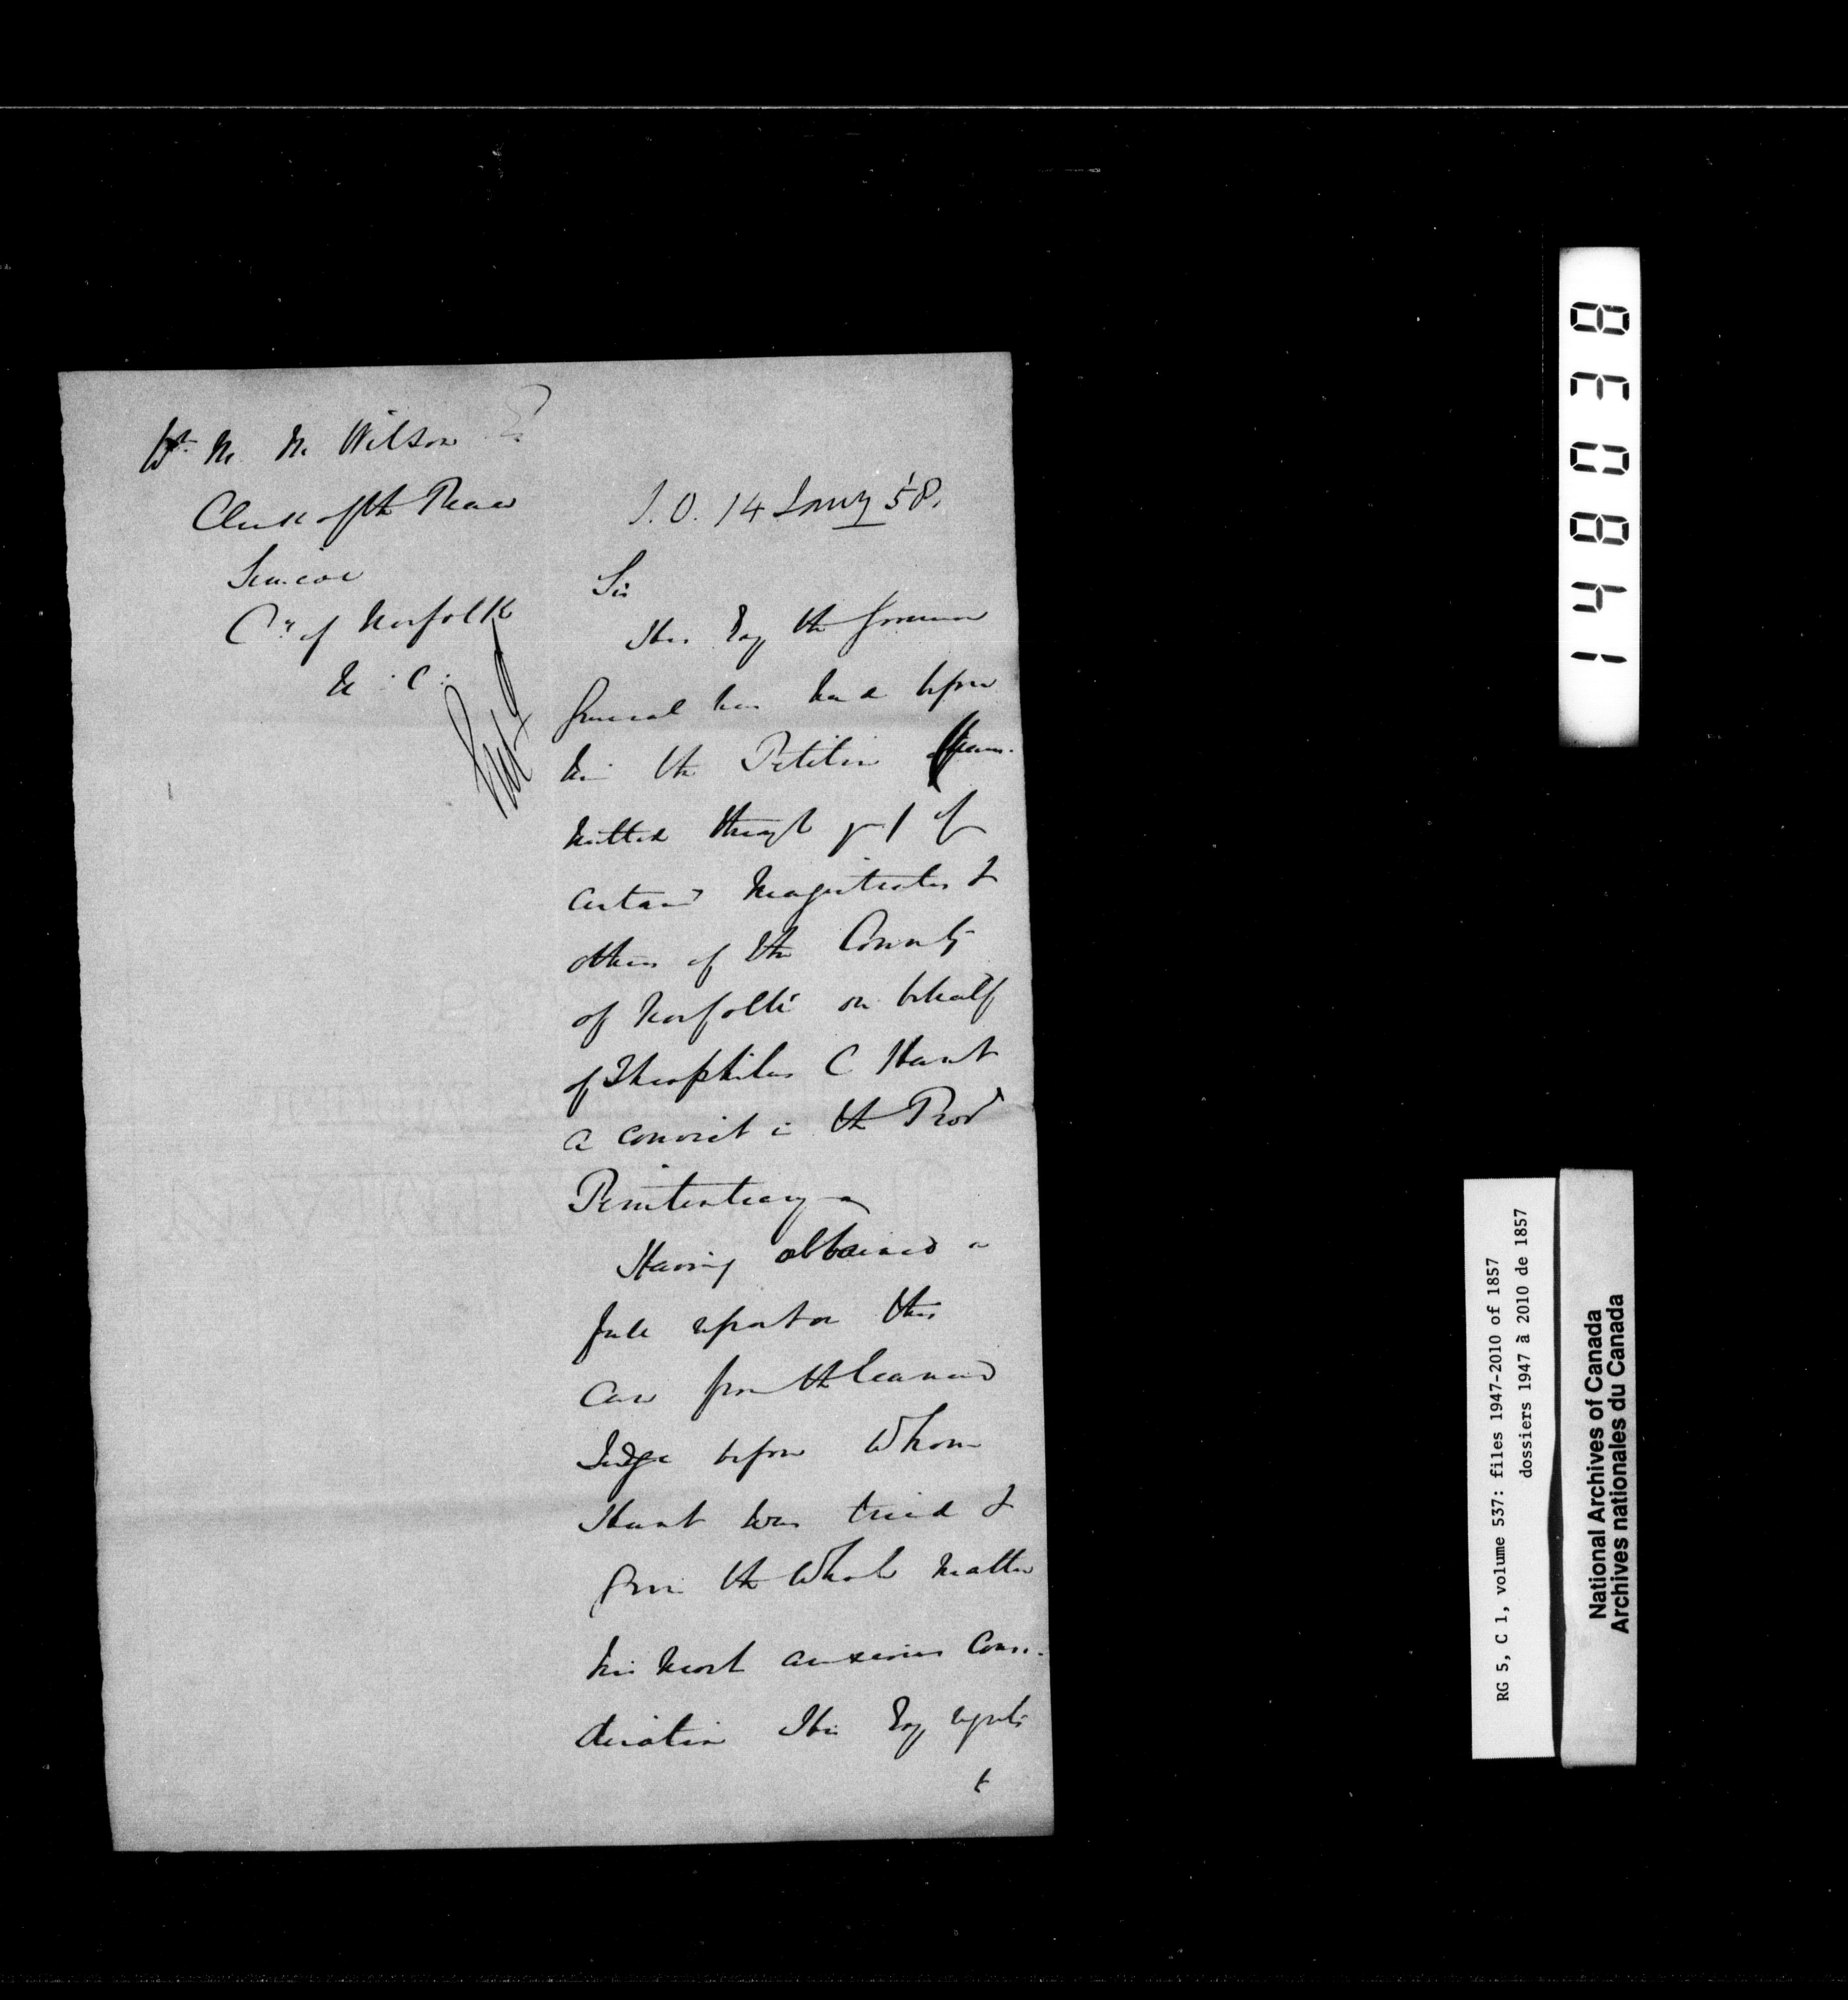 Wm M. M. Wilson
Clerk of the Peace
Simcoe
Cy of Norfolk
U. C.
S. O. 14 Jany 58.
Sir
His Exy the Governor
General has had before
him the Petition trans-
mitted through you of
certain Magistrates &
others of the County
of Norfolk on behalf
of Theophilus C Hunt
a convict in the Prov
Penitentiary
Having obtained a
full report on this
case from the learned
Judge before whom
Hunt was tried &
given the whole matter
his most anxious consi-
deration His Exy regrets
t
148038
RG 5, C 1, volume 537: files 1947-2010 of 1857
dossiers 1947 à 2010 de 1857
National Archives of Canada
Archives nationales du Canada